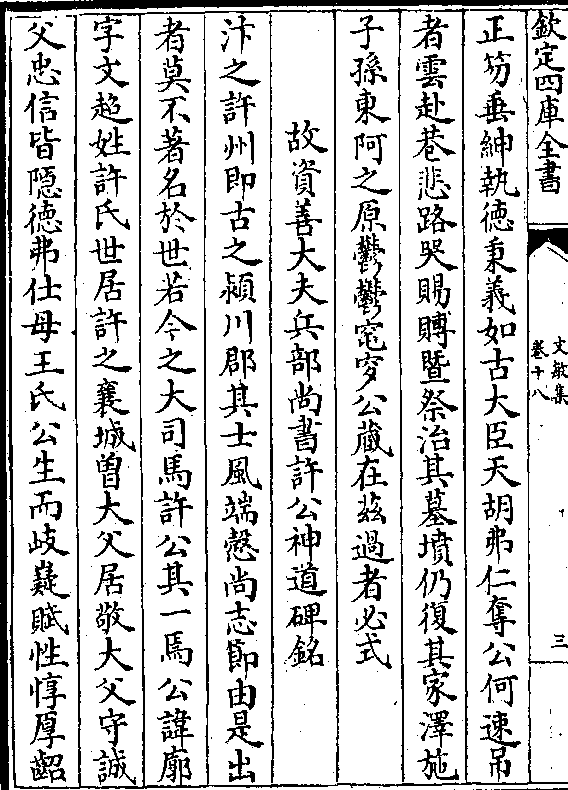 欽定四庫全書
文敏集
卷十八
三
正笏垂紳執德秉義如古大臣天胡弗仁奪公何速吊
者雲赴巷悲路哭賜賻暨祭治其墓墳仍復其家澤施
子孫東阿之原鬱鬱窀穸公藏在兹過者必式
故資善大夫兵部尚書許公神道碑銘
汴之許州即古之潁川郡其士風端慤尚志節由是出
者莫不著名於世若今之大司馬許公其一焉公諱廓
字文超姓許氏世居許之襄城曽大父居敬大父守誠
父忠信皆隠德弗仕母王氏公生而歧嶷賦性惇厚齠